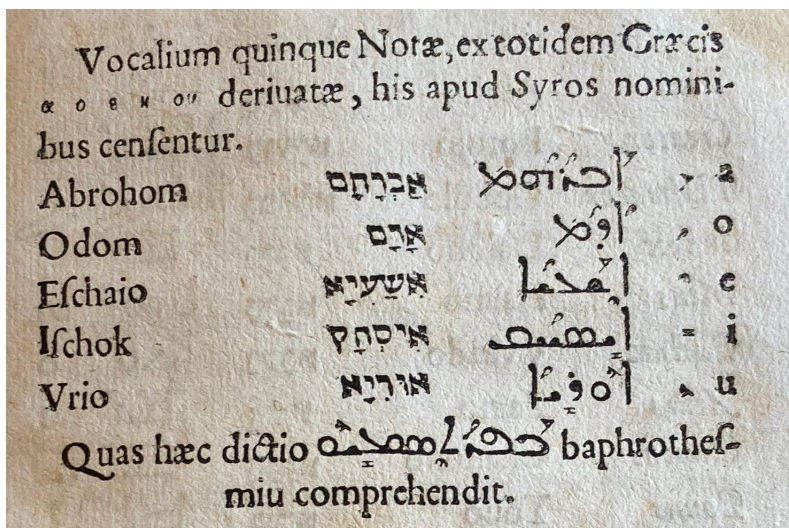 Vocalium quinque Notæ, ex totidem Græcis
α ο ε η ου deriuatæ, his apud Syros nomini-
bus cenſentur.
Abrohom אַבְרָהָם ܐܰܒܪܳܗܳܡ a
Odom אָדָם ܐܳܕܳܡ o
Eſchaio אֶשַׁעְיָא ܐܶܫܰܥܝܳܐ e
Iſchok אִיסְחָק ܐܺܝܣܚܳܩ i
Vrio אוּרִיָא ܐܽܘܪܺܝܳܐ u
Quas hæc dictio baphrotheſ-
miu comprehendit.